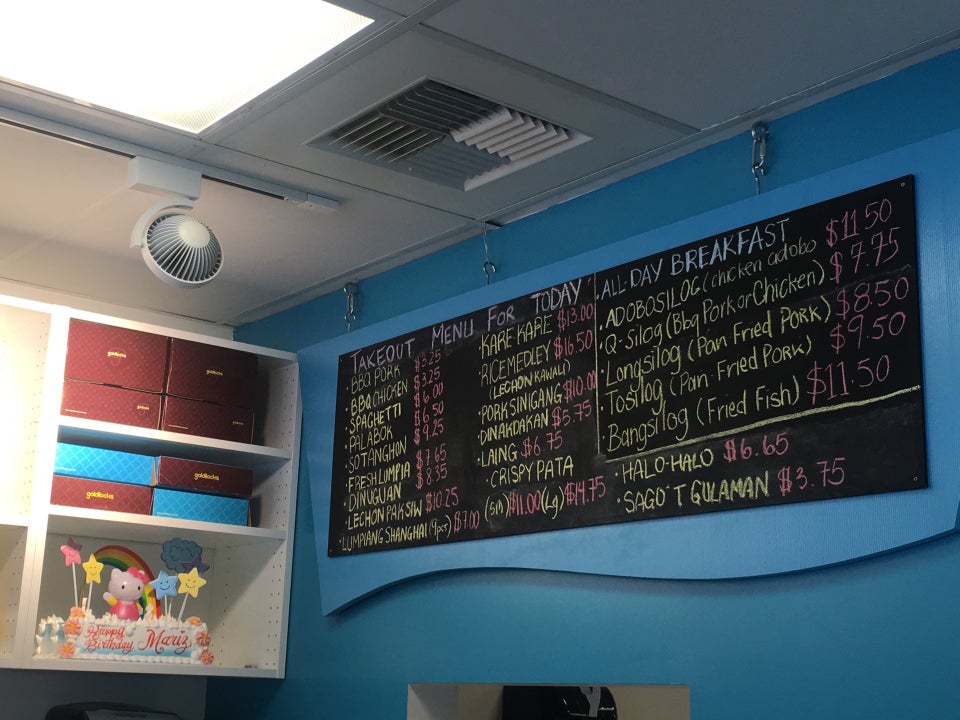 TAKEOUT MENU FOR TODAY
· BBQ PORK $3.25
· BBQ CHICKEN $3.25
· SPAGHETTI $6.00
· PALABOK $6.50
· SOTANGHON $9.25
· FRESH LUMPIA $7.65
· DINUGUAN $8.35
· LECHON PAKSIW $10.25
· LUMPIANG SHANGHAI (9pcs) $7.00
· KARE KARE $13.00
· RICE MEDLEY $16.50
(LECHON KAWALI)
· PORK SINIGANG $10.00
· DINAKDAKAN $5.75
· LAING $6.75
· CRISPY PATA
(sm) $11.00 (Lg) $14.75
ALL-DAY BREAKFAST
· ADOBOSILOG (chicken adobo $11.50
· Q-Silog (Bbq Pork or Chicken) $7.75
· Longsilog (Pan Fried Pork) $8.50
· Tosilog (Pan Fried Pork) $9.50
· Bangsilog (Fried Fish) $11.50
· HALO-HALO $6.65
· SAGO'T GULAMAN $3.75
goldilocks
goldilocks
goldilocks
goldilocks
Happy Birthday Mariz